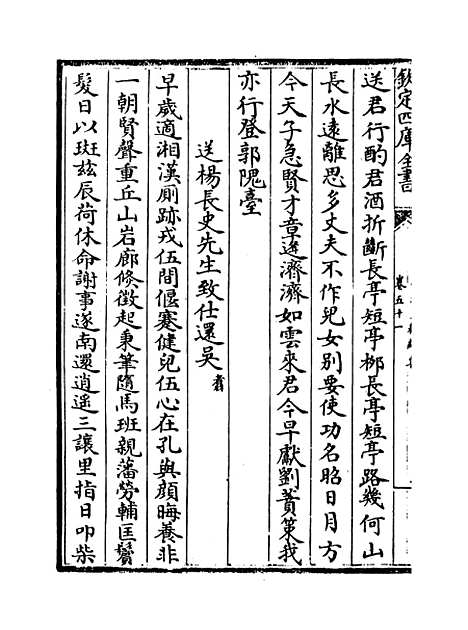 欽定四庫全書
卷五十一
送君行酌君酒折斷長亭短亭柳長亭短亭路幾何山
長水遠離思多丈夫不作兒女別要使功名昭日月方
今天子急賢才章逄濟濟如雲來君今早獻劉蕡策我
亦行登郭隗臺
送楊長史先生致仕還吳翥
早歲適湘漢厠跡戎伍間偃蹇健兒伍心在孔與顔晦養非
一朝賢聲重丘山岩廊倏徵起秉筆隨馬班親藩勞輔匡鬢
髮日以斑茲辰荷休命謝事遂南還逍遥三讓里指日叩柴